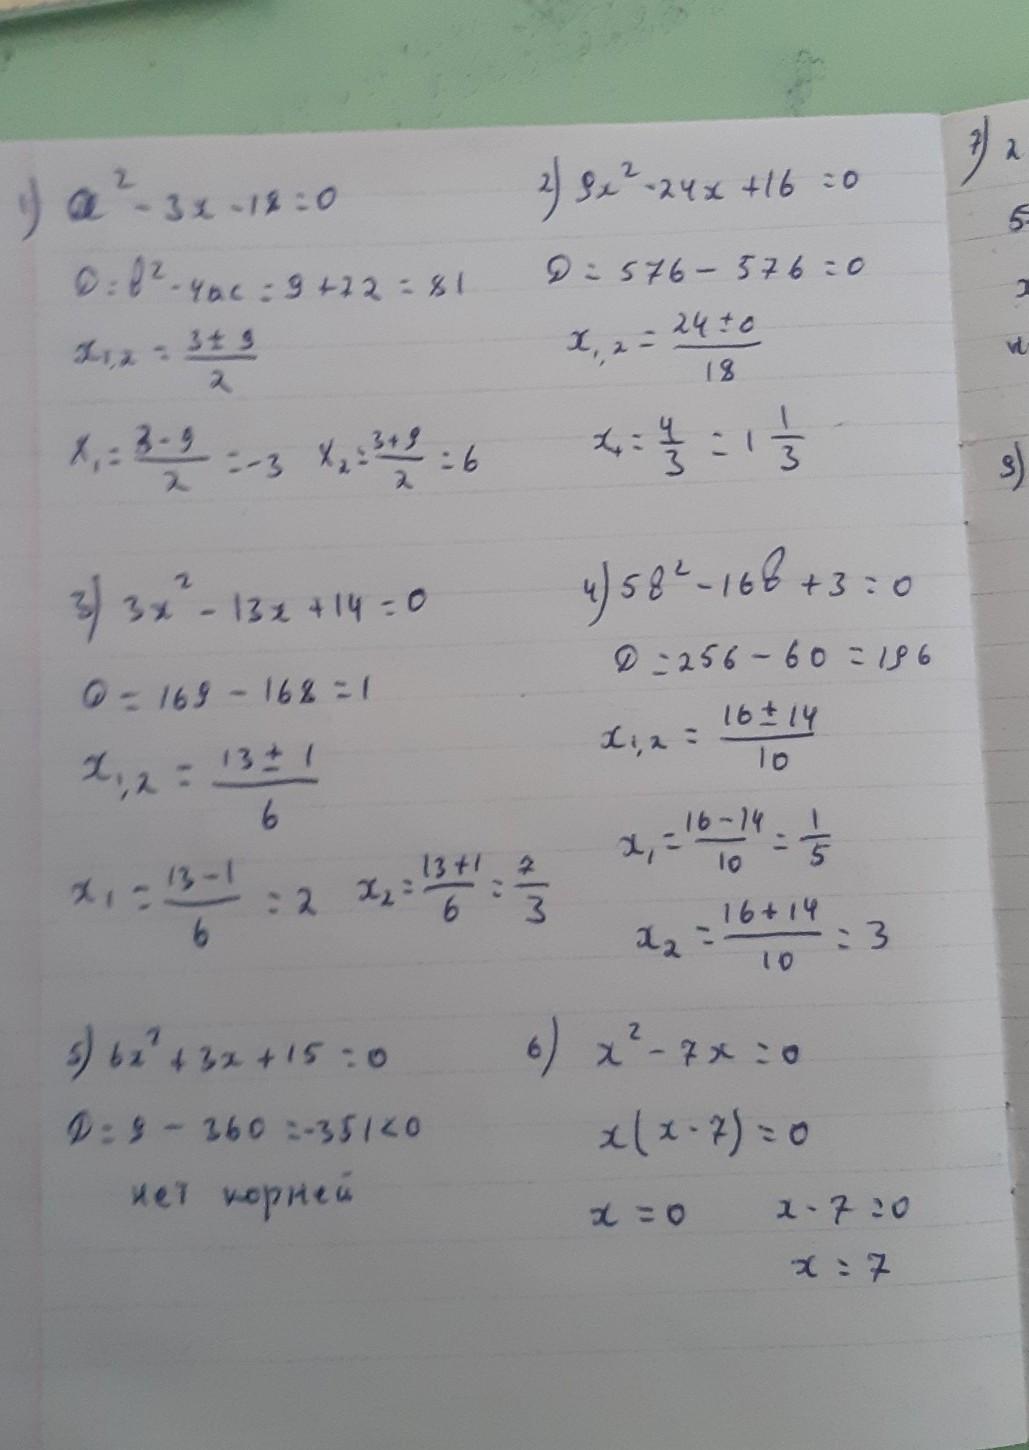 1) x² - 3x - 18 = 0
D = b² - 4ac = 9 + 72 = 81
x₁,₂ = (3 ± 9)/2
x₁ = (3 - 9)/2 = -3 x₂ = (3 + 9)/2 = 6
2) 9x² - 24x + 16 = 0
D = 576 - 576 = 0
x₁,₂ = (24 ± 0)/18
x₁ = 4/3 = 1 1/3
3) 3x² - 13x + 14 = 0
D = 169 - 168 = 1
x₁,₂ = (13 ± 1)/6
x₁ = (13 - 1)/6 = 2 x₂ = (13 + 1)/6 = 7/3
4) 5b² - 16b + 3 = 0
D = 256 - 60 = 196
x₁,₂ = (16 ± 14)/10
x₁ = (16 - 14)/10 = 1/5
x₂ = (16 + 14)/10 = 3
5) 6x² + 3x + 15 = 0
D = 9 - 360 = -351 < 0
нет корней
6) x² - 7x = 0
x(x - 7) = 0
x = 0 x - 7 = 0
x = 7
7) 2
5
9)